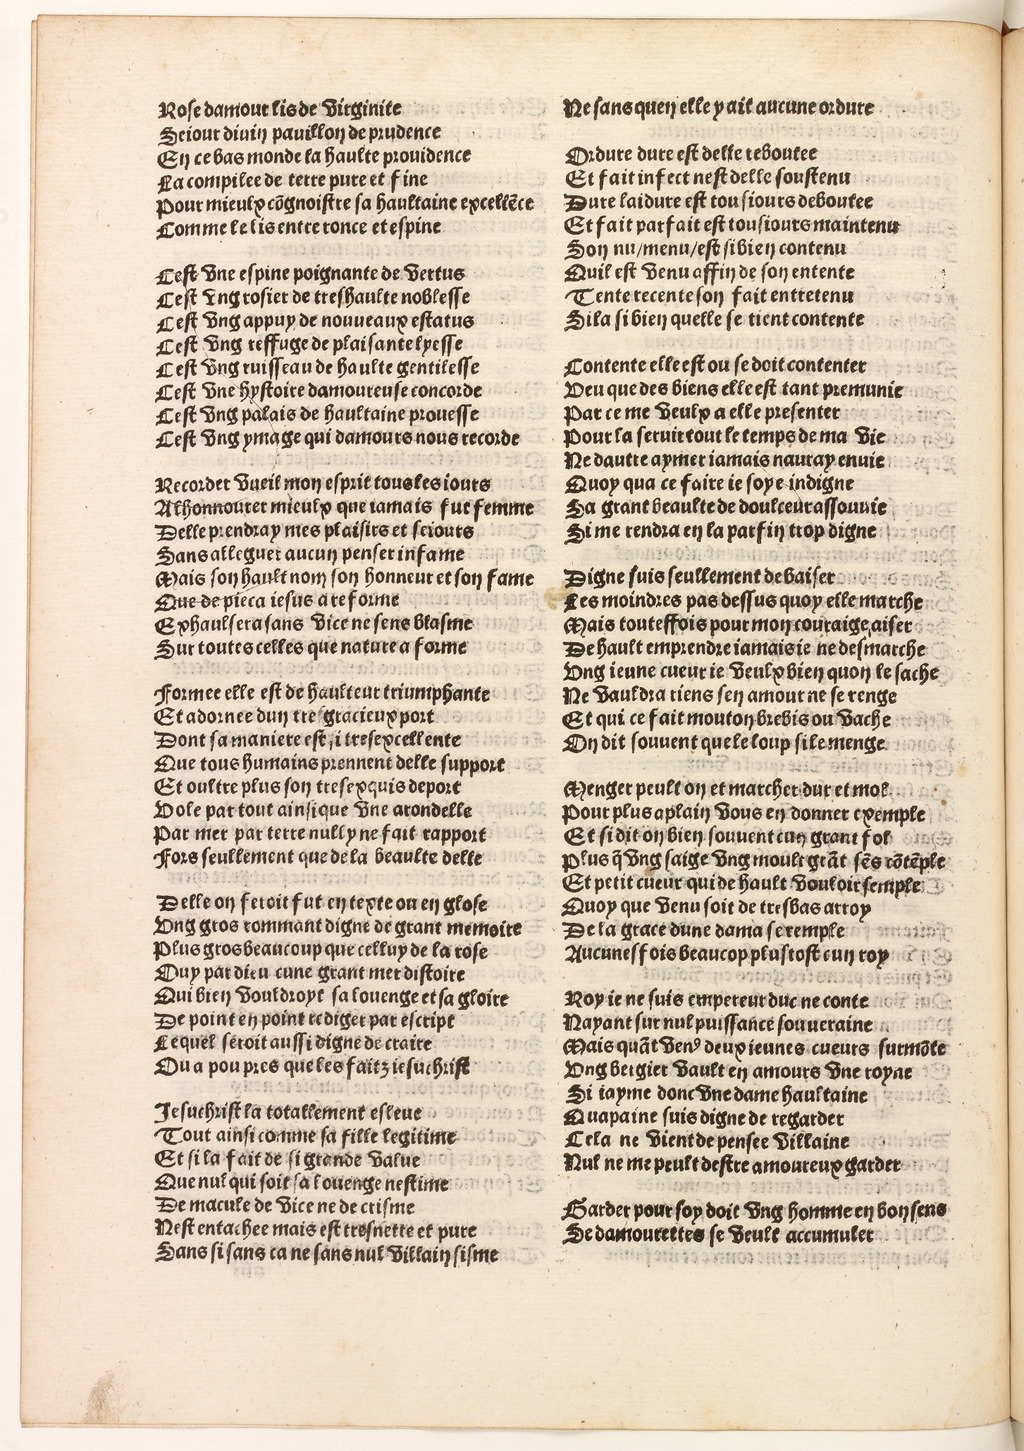 Rose damour lis de Virginite
Seiour diuin pauillon de prudence
En ce bas monde la haulte prouidence
La compilee de terre pure et fine
Pour mieulx cõgnoistre sa haultaine excellẽce
Comme le lis entre ronce et espine
Cest Vne espine poignante de Vertus
Cest Vng rosier de treshaulte noblesse
Cest Vng appuy de nouueaux estatus
Cest Vng reffuge de plaisante lyesse
Cest Vng ruisseau de haulte gentilesse
Cest Vne hystoire damoureuse concorde
Cest Vng palais de haultaine prouesse
Cest Vng ymage qui damours nous recorde
Recorder Vueil mon esprit tous les iours
A lhonnourer mieulx que iamais fut femme
Delle prendray mes plaisirs et seiours
Sans alleguer aucun penser infame
Mais son hault nom son honneur et son fame
Que de pieca iesus a reforme
Exhaulsera sans Vice ne sens blasme
Sur toutes celles que nature a forme
Formee elle est de haulteur triumphante
Et adornee dun tre gracieux port
Dont sa maniere est si tresexcellente
Que tous humains prennent delle support
Et oultre plus son tresexquis deport
Vole par tout ainsique Vne arondelle
Par mer par terre nully ne fait rapport
Fors seullement que de la beaulte delle
Delle on feroit fut en texte ou en glose
Vng gros rommant digne de grant memoire
Plus gros beaucoup que celluy de la rose
Ouy par dieu cune grant mer distoire
Qui bien Vouldroyt sa louenge et sa gloire
De point en point rediger par escript
Lequel seroit aussi digne de craire
Ou a pou pres que les faitz iesuchrist
Jesuchrist la totallement esleue
Tout ainsi comme sa fille legitime
Et si la fait de si grande Value
Que nul qui soit sa louenge nestime
De macule de Vice ne de crisme
Nest entachee mais est tresnette et pure
Sans si sans ca ne sans nul Villain sisme
Ne sans quen elle y ait aucune ordure
Ordure dure est delle reboutee
Et fait infect nest delle soustenu
Dure laidure est tousiours deboutee
Et fait parfait est tousiours maintenu
Son nu/menu/est si bien contenu
Quil est Venu affin de son entente
Tente recente son fait entretenu
Si la si bien quelle se tient contente
Contente elle est ou se doit contenter
Veu que des biens elle est tant premunie
Par ce me Veulx a elle presenter
Pour la seruir tout le temps de ma Vie
Ne dautre aymer iamais nauray enuie
Quoy qua ce faire ie soye indigne
Sa grant beaulte de doulceur assouuie
Si me rendra en la parfin trop digne
Digne suis seullement de baiser
Les moindres pas dessus quoy elle marche
Mais touteffois pour mon couraige aiser
De hault emprendre iamais ie ne desmarche
Vng ieune cueur ie Veulx bien quon le sache
Ne Vauldra riens sen amour ne se renge
Et qui ce fait mouton brebis ou Vache
On dit souuent que le loup si le menge
Menger peult on et marcher dur et mol
Pour plus aplain Vous en donner exemple
Et si dit on bien souuent cun grant fol
Plus q̃ Vng saige Vng moult grãt sẽs cõtẽple
Et petit cueur qui de hault Vouloir semple
Quoy que Venu soit de tresbas arroy
De la grace dune dama se remple
Aucunesfois beaucop plustost cun roy
Roy ie ne suis empereur duc ne conte
Nayant sur nul puissance souueraine
Mais quãt Venꝰ deux ieunes cueurs surmõte
Vng bergier Vault en amours Vne royne
Si iayme donc Vne dame haultaine
Quapaine suis digne de regarder
Cela ne Vient de pensee Villaine
Nul ne me peult destre amoureux garder
Garder pour soy doit Vng homme en bon sens
Se damourettes se Veult accumuler